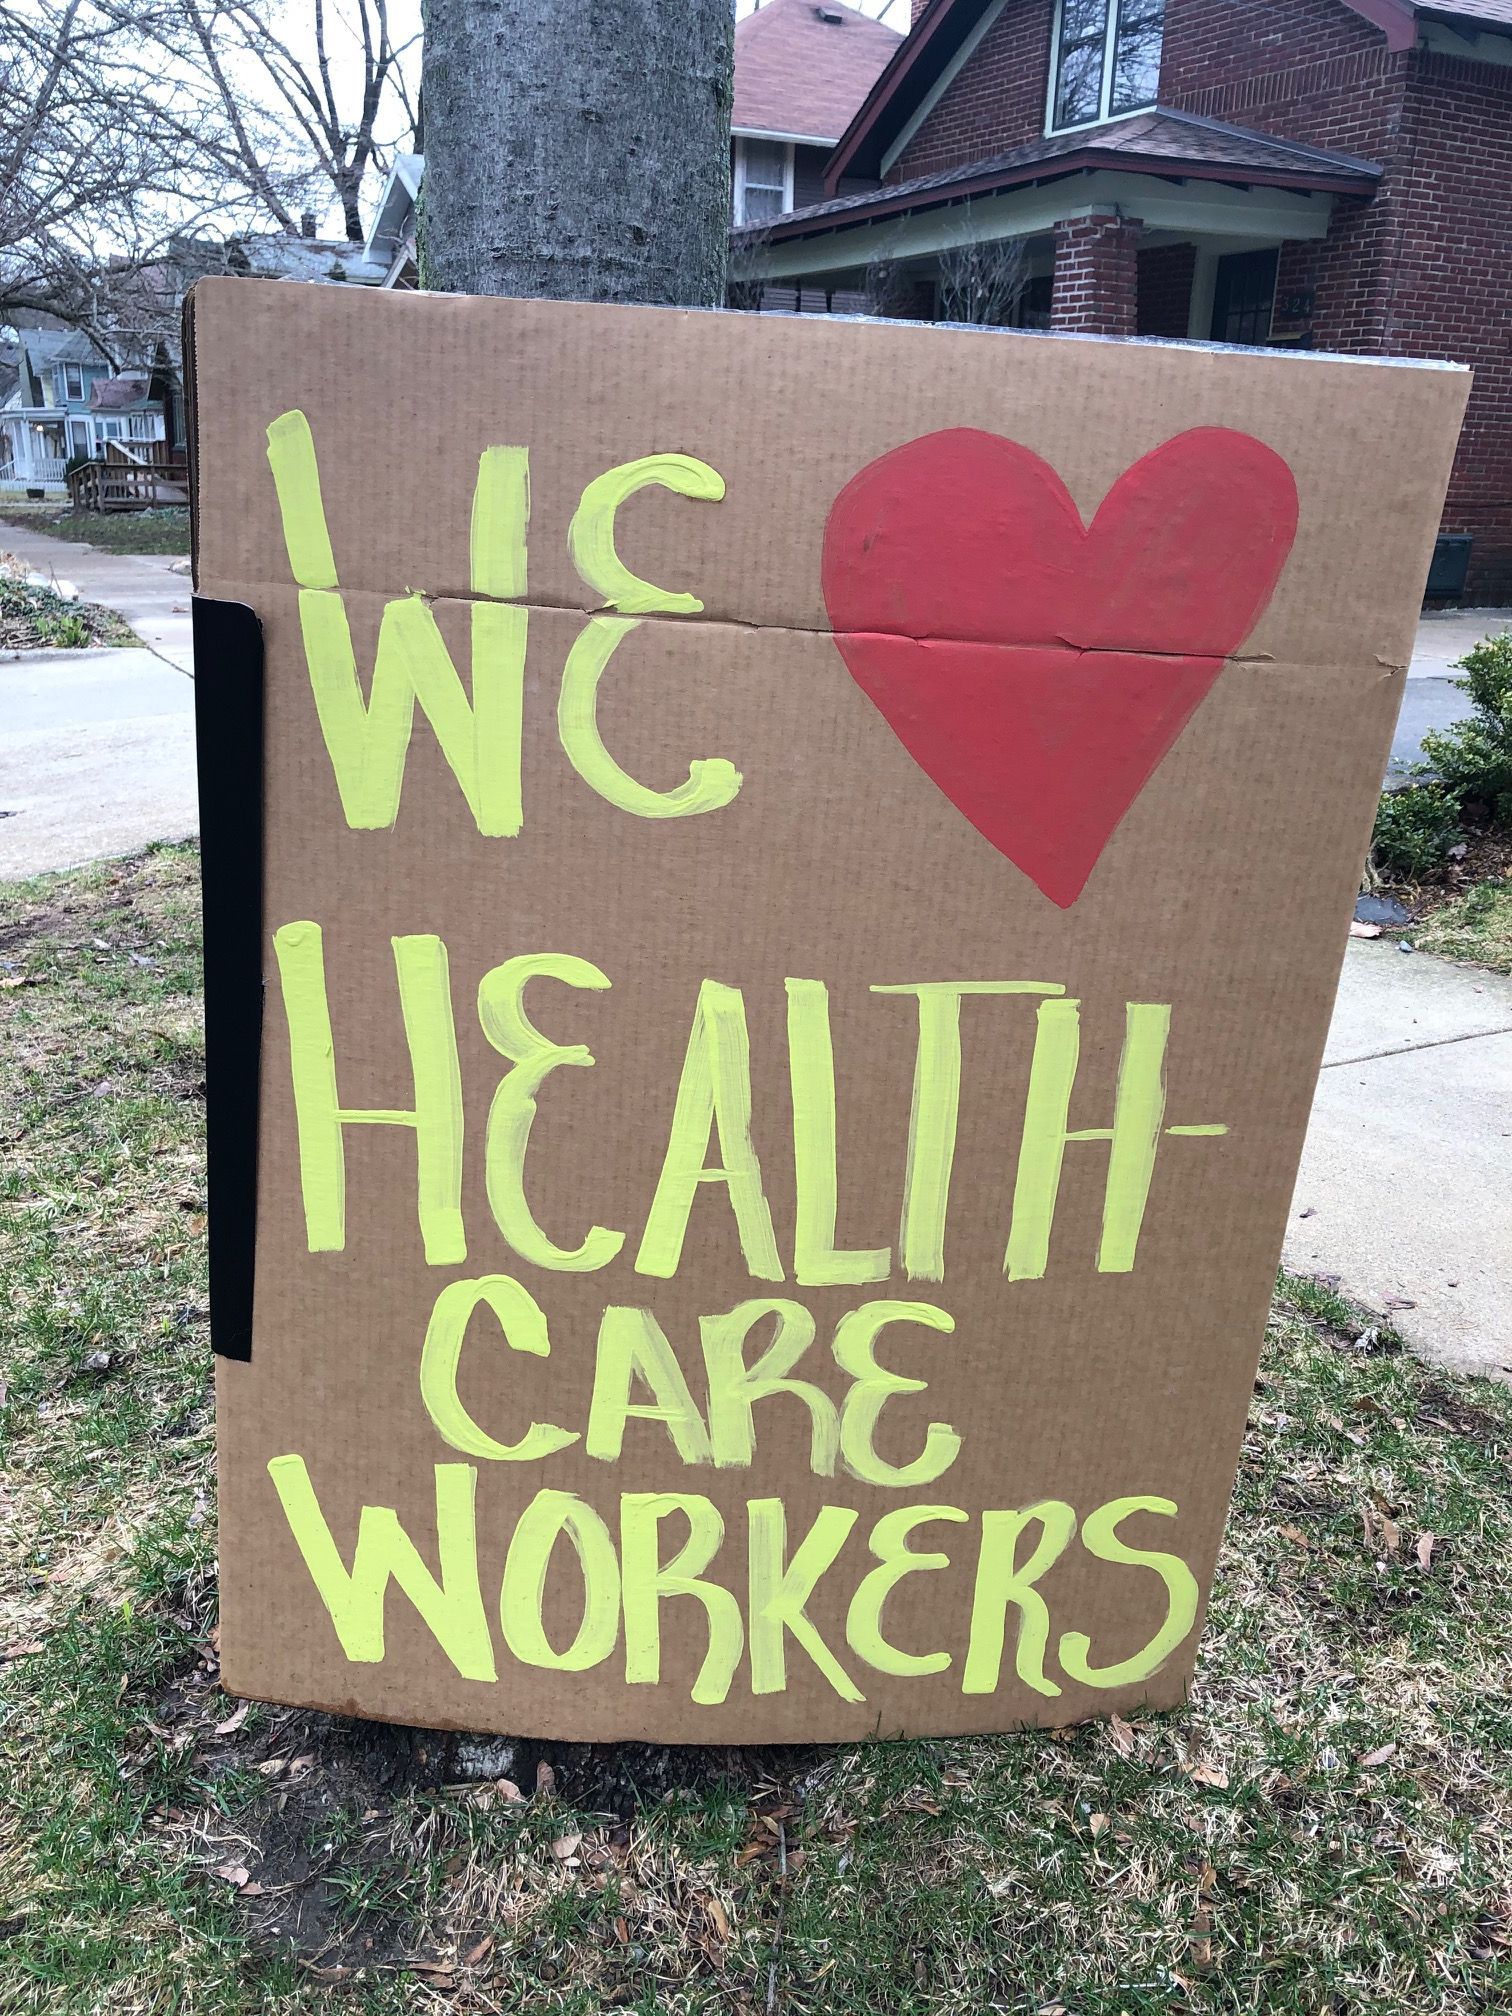 WE ❤
HEALTH-
CARE
WORKERS
324